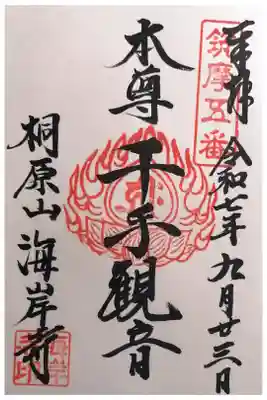 奉拝 令和七年九月廿三日
筑摩五番
本尊 千手観音
桐原山 海岸寺